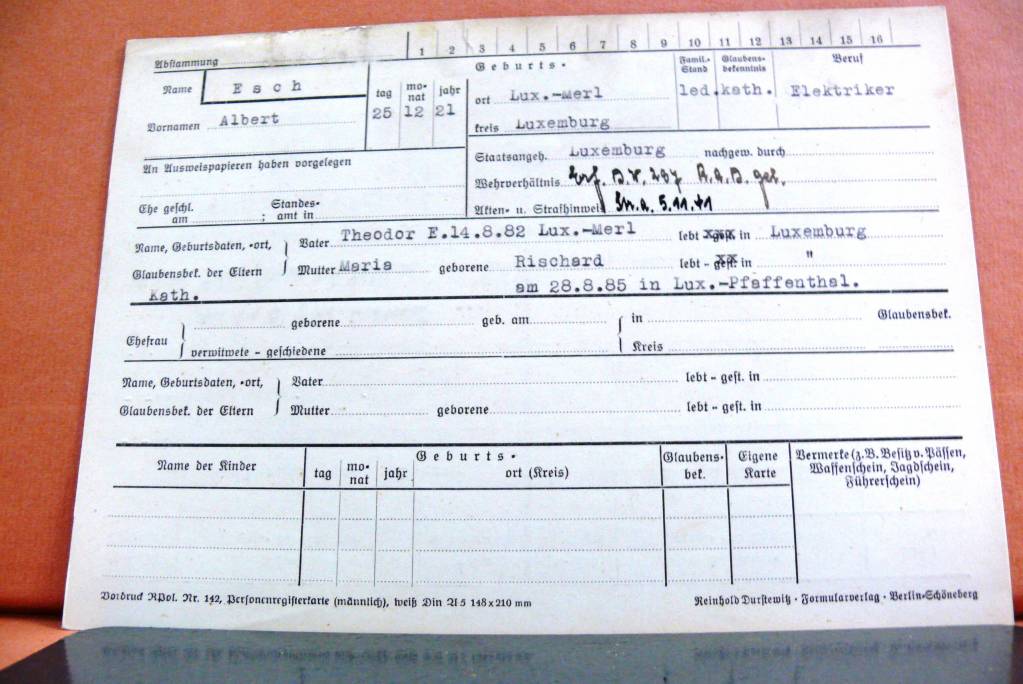 1 2 3 4 5 6 7 8 9 10 11 12 13 14 15 16
Abstammung
Name Esch
Vornamen Albert
Geburts-
tag monat jahr
25 12 21
ort Lux.-Merl
kreis Luxemburg
Famil.-Stand
led.
Glaubensbekenntnis
kath.
Beruf
Elektriker
An Ausweispapieren haben vorgelegen
Ehe geschl. am ; Standesamt in
Staatsangeh. Luxemburg nachgew. durch
Wehrverhältnis Erf. B.V. R.A.D. gel.
Akten- u. Strafhinweis 5.11.41
Name, Geburtsdaten, -ort, Vater Theodor E.14.8.82 Lux.-Merl lebt xgest in Luxemburg
Glaubensbek. der Eltern Mutter Maria geborene Rischard lebt - gest. in "
Kath. am 28.8.85 in Lux.-Pfaffenthal.
Ehefrau geborene geb. am in Glaubensbek.
verwitwete - geschiedene Kreis
Name, Geburtsdaten, -ort, Vater lebt - gest. in
Glaubensbek. der Eltern Mutter geborene lebt - gest. in
Name der Kinder
Geburts-
tag monat jahr ort (Kreis)
Glaubensbek.
Eigene Karte
Vermerke (z.B. Besitz v. Pässen,
Waffenschein, Jagdschein,
Führerschein)
Vordruck RPol. Nr. 142, Personenregisterkarte (männlich), weiß Din A 5 148 x 210 mm
Reinhold Durstewitz · Formularverlag · Berlin-Schöneberg